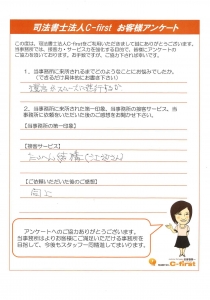 司法書士法人C-first お客様アンケート
この度は、司法書士法人C-firstをご利用いただきまして誠にありがとうございます。
当事務所では、接客力・サービス力を強化する目的で、皆様にアンケートの
ご協力を頂いております。お手数ですが、ご協力下されば幸いです。
1、当事務所に来所されるまでどのようなことにお悩みでしたか。
(できるだけ具体的にお書き下さい)
2、当事務所に来所された第一印象、当事務所の接客サービス、当
事務所に依頼をいただいた後のご感想をお聞かせ下さい。
【当事務所の第一印象】
【接客サービス】
【ご依頼いただいた後のご感想】
同上
アンケートへのご協力ありがとうございます。
当事務所はよりお客様にご満足いただける事務所を
目指して、今後もスタッフ一同精進してまいります。
C-first